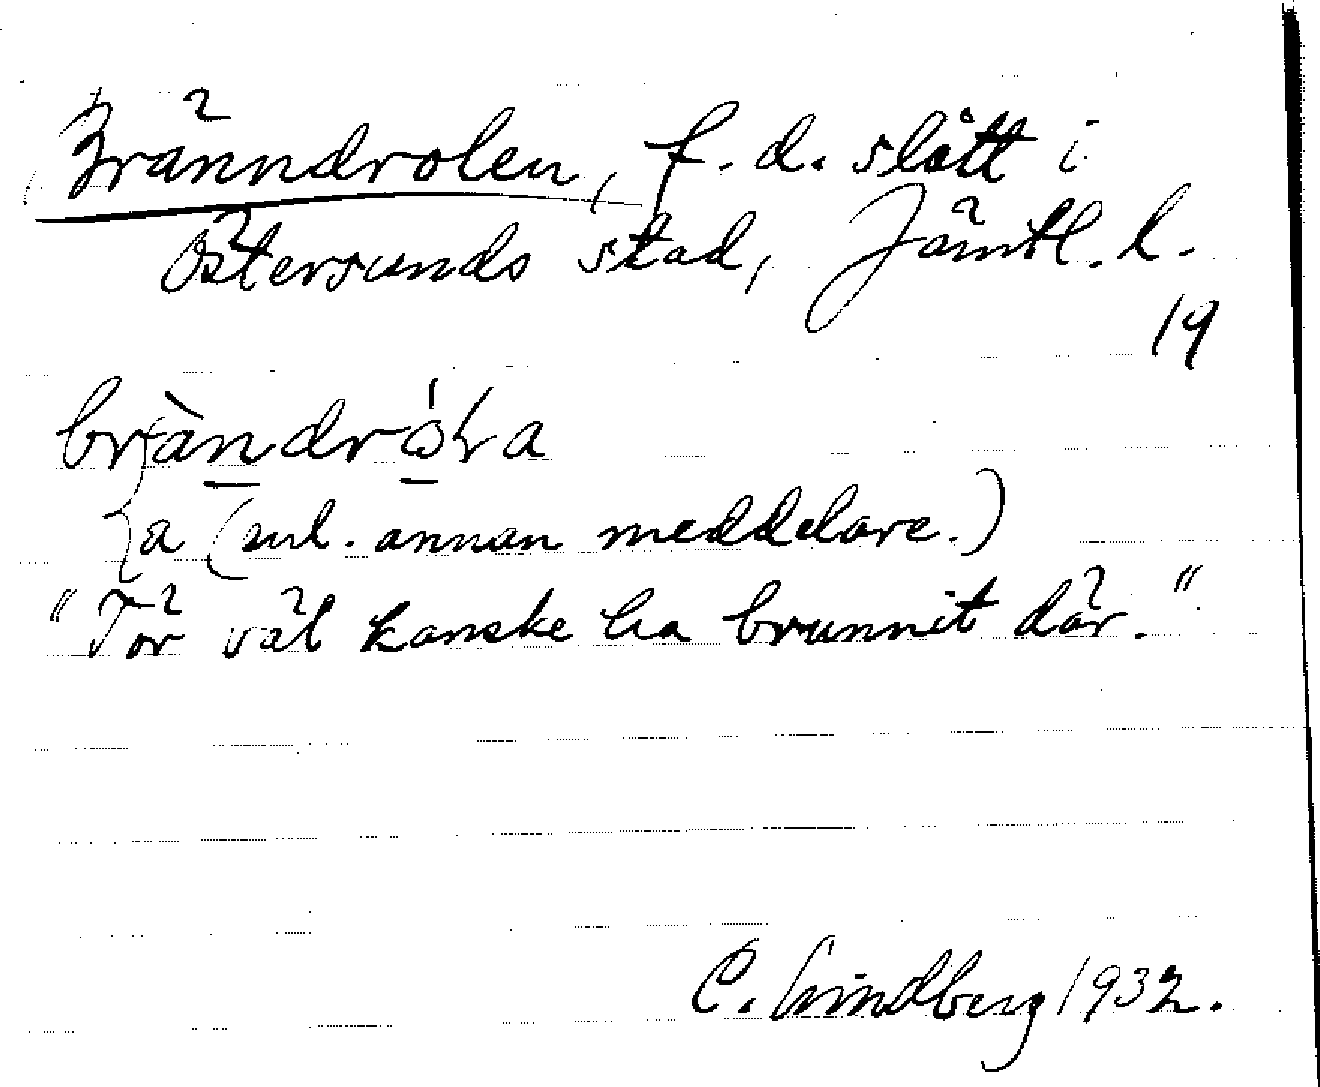 Bränndrolen, f. d. slått i
Östersunds stad, Jämtl. l.
19
bràndróla
{a (enl. annan meddelare.)
"Tör väl kanske ha brunnit där."
C. Lindberg 1932.